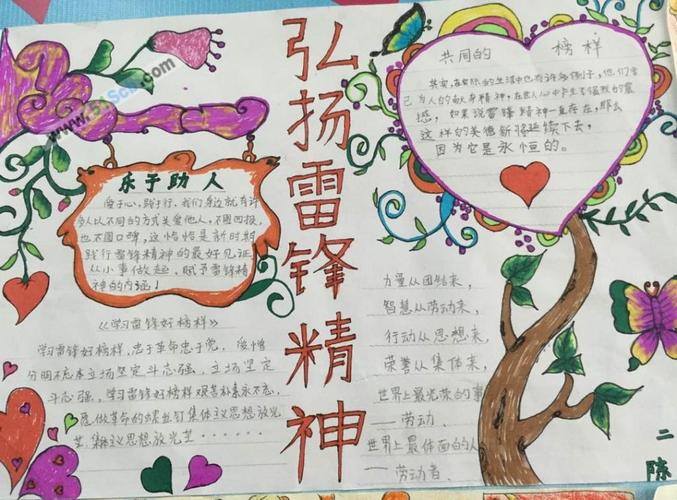 弘扬雷锋精神
乐于助人
爱于心,践于行,我们身边就有许
多人以不同的方式关爱他人,不图回报,
也不图口碑,这恰恰是新时期
践行雷锋精神的最好见证
从小事做起,赋予雷锋精
神的内涵!
《学习雷锋好榜样》
学习雷锋好榜样,忠于革命忠于党,爱憎
分明不忘本立场坚定斗志强,立场坚定
斗志强,学习雷锋好榜样艰苦朴素永不忘,
愿做革命的螺丝钉集体主义思想放光
芒,集体主义思想放光芒……
共同的 榜样
其实,在实际的生活中也有许多
己为人的献身精神,在世人心中产生了强烈的震
感,如果说雷锋精神一直存在,那么
这样的美德新将延续下去,
因为它是永恒的。
力量从团结来,
智慧从劳动来,
行动从思想来,
荣誉从集体来,
世界上最光荣的事
——劳动.
世界上最体面的人
——劳动者.
二
陈